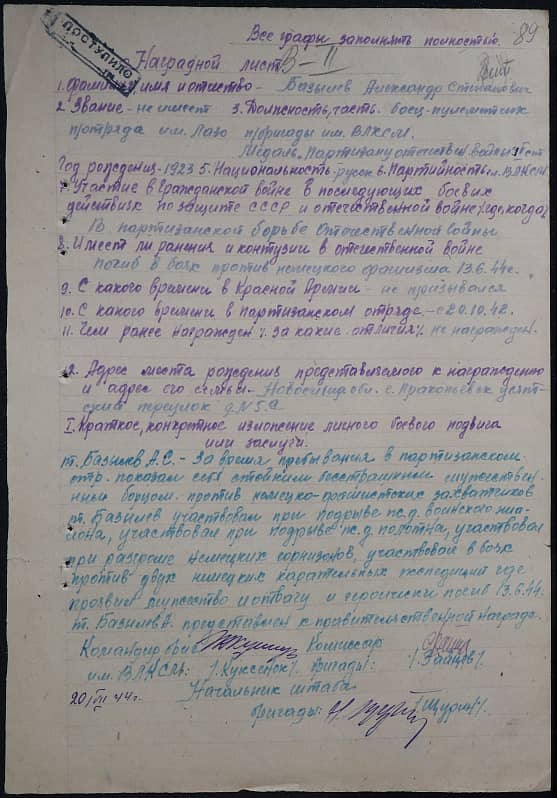 Все графы заполнять полностью. 89
ПОСТУПИЛО
Наградной лист В-II
1. Фамилия имя и отчество - Базылев Александр Степанович
2. Звание - не имеет 3. Должность, часть. боец-пулеметчик
п/отряда им. Лазо п/бригады им. ВЛКСМ.
Медаль "Партизану отечествен. войны"
Год рождения - 1923 5. Национальность - русск 6. Партийность ВЛКСМ
7. Участие в гражданской войне в последующих боевых
действиях по защите СССР и отечественной войне (где, когда)
В партизанской борьбе Отечественной войны
8. Имеет ли ранения и контузии в отечественной войне
погиб в боях против немецкого фашизма 13.6.44г.
9. С какого времени в Красной Армии - не призывался
10. С какого времени в партизанском отряде. - с 20.10.42.
11. Чем ранее награжден /. за какие отличия/. не награжден.
2. Адрес места рождения представляемого к награждению
и адрес его семьи. - Новосибир обл. г. Прокопьевск
переулок д. N 5.
I. Краткое, конкретное изложение личного боевого подвига
или заслуги.
т. Базылев А.С. - За время пребывания в партизанском
отр. показал себя стойким бесстрашным мужествен
ным борцом против немецко-фашистских захватчиков
т. Базылев участвовал при подрыве ж.д. воинского эше-
лона, участвовал при подрыве ж.д. полотна, участвовал
при разгроме немецких гарнизонов, участвовал в боях
против двух немецких карательных экспедиций где
проявил мужество и отвагу и героически погиб 13.6.44г.
т. Базылев представлен к правительственной награде.
Командир бриг. Комиссар
им. ВЛКСМ: /. Куксенок/. бригады: /. Зайцев/.
20/VII 44г. Начальник штаба
бригады: /. Щурик/.